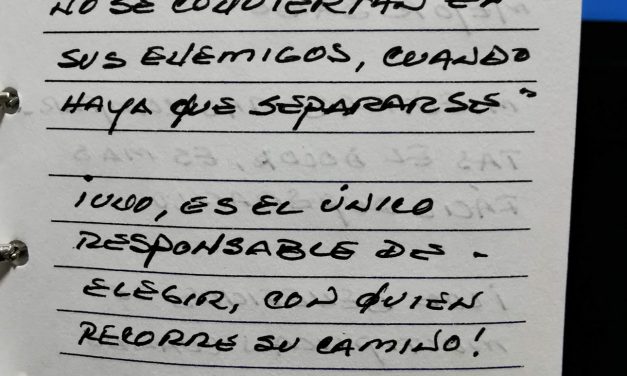 NO SE CONVIERTAN EN
SUS ENEMIGOS, CUANDO
HAYA QUE SEPARARSE"
¡UNO, ES EL ÚNICO
RESPONSABLE DE -
ELEGIR, CON QUIEN
RECORRE SU CAMINO!